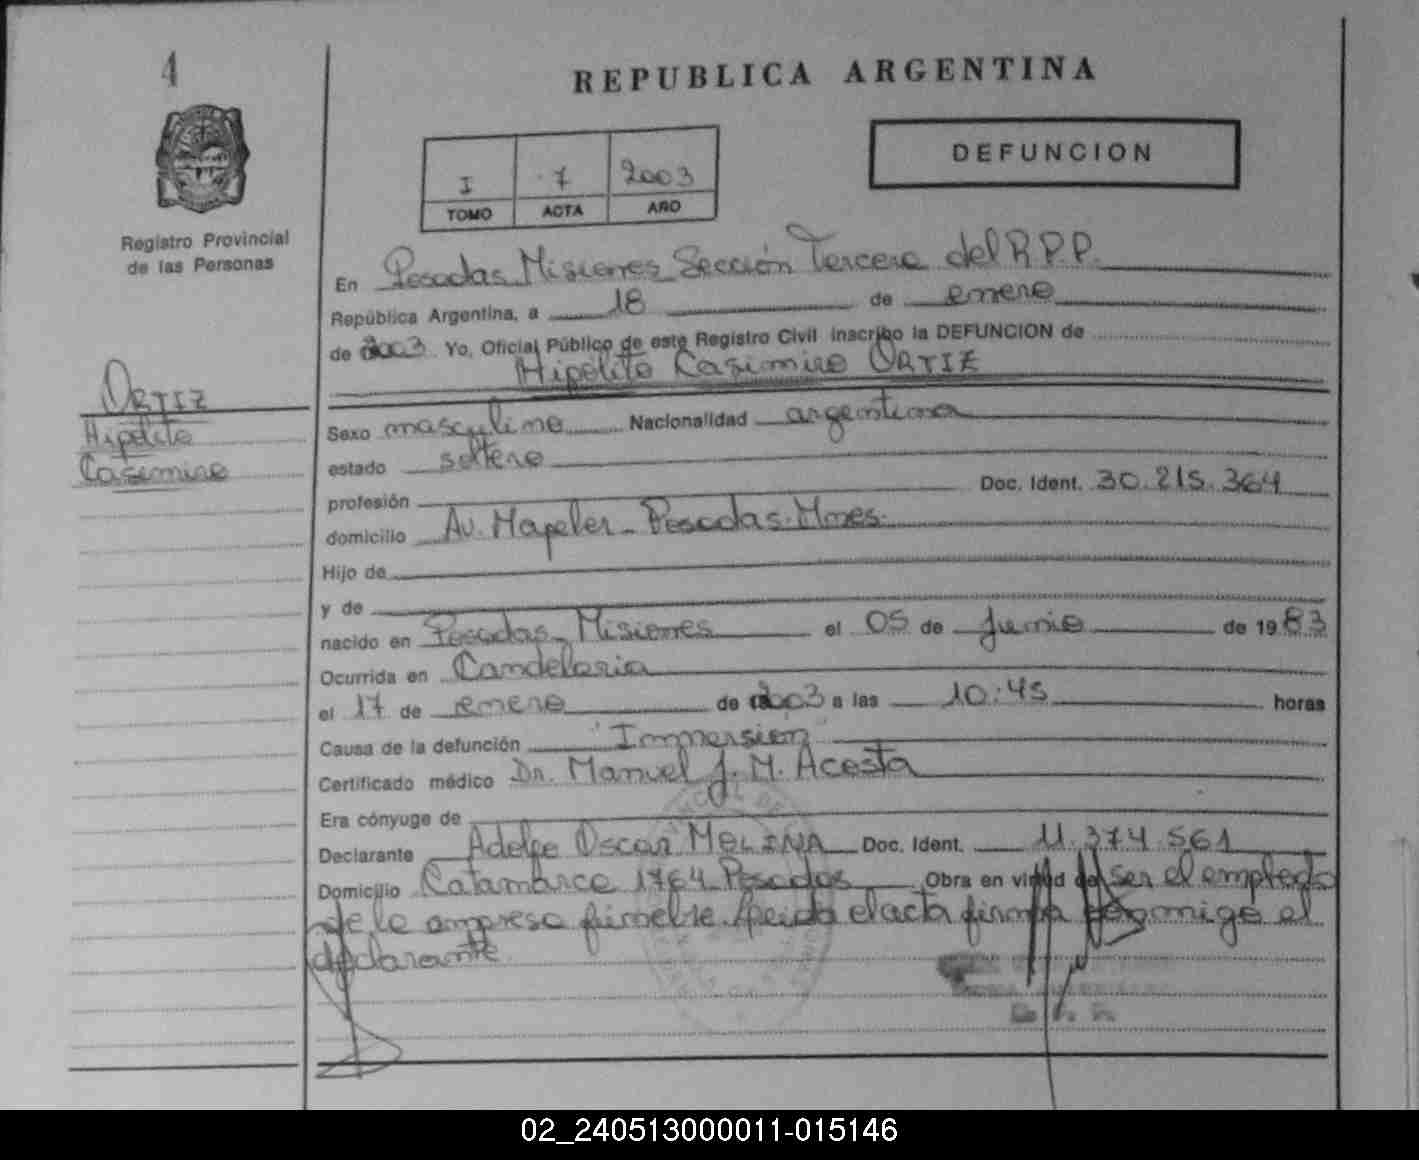 4
REPUBLICA ARGENTINA
I 7 2003
TOMO ACTA AÑO
DEFUNCION
Registro Provincial
de las Personas
En Posadas Misiones Sección Tercera del R.P.P.
República Argentina, a 18 de enero
de 2003 Yo, Oficial Público de este Registro Civil inscribo la DEFUNCION de
Hipólito Casimiro ORTIZ
ORTIZ
Hipólito
Casimiro
Sexo masculino Nacionalidad argentina
estado soltero
profesión Doc. Ident. 30.215.364
domicilio Av. Mapeler - Posadas. Mnes.
Hijo de
y de
nacido en Posadas - Misiones el 05 de junio de 1983
Ocurrida en Candelaria
el 17 de enero de 2003 a las 10:45 horas
Causa de la defunción "Inmersión"
Certificado médico Dr. Manuel J. M. Acosta
Era cónyuge de
Declarante Adolfo Oscar MOLINA Doc. Ident. 11.374.561
Domicilio Catamarca 1764 Posadas Obra en virtud de ser el empleado
de la empresa fúnebre. Leída el acta firma conmigo el
declarante.
02_240513000011-015146